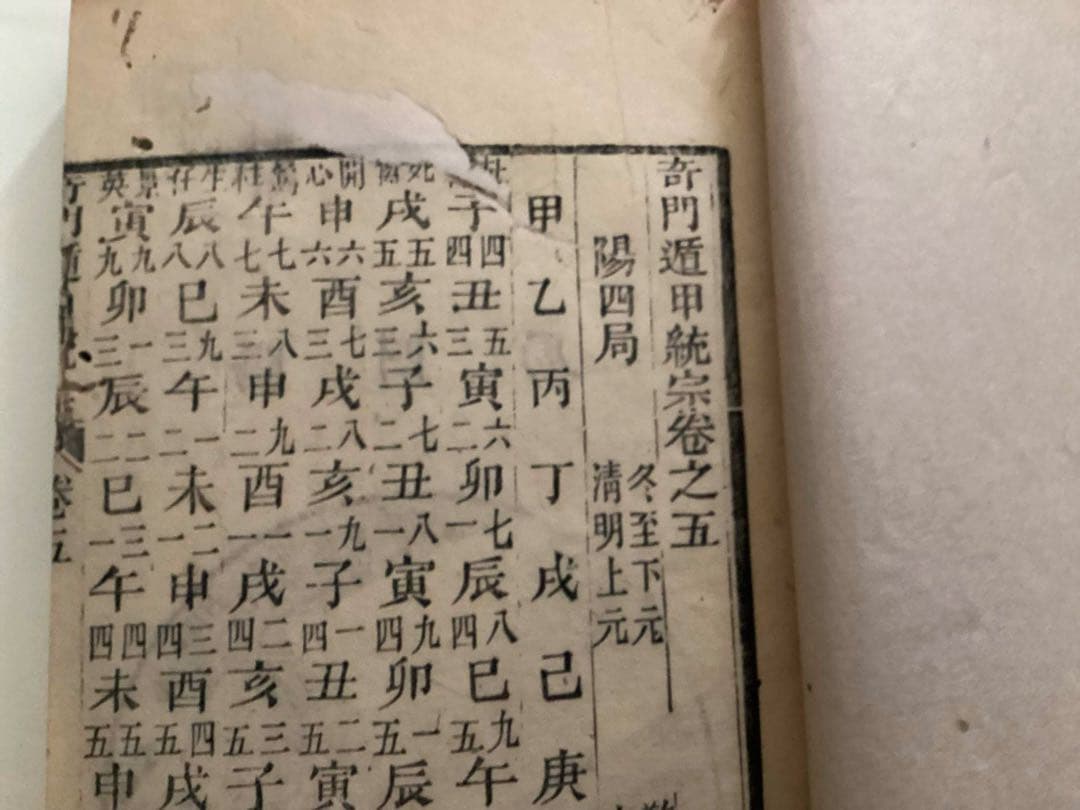 奇門遁甲統宗卷之五
陽四局
冬至下元
清明上元
甲乙丙丁戊己庚
子四四丑五三寅六二卯七一辰八四巳九五午
死禽戌五五亥六三子七二丑八一寅九四卯一五辰
開心申六六酉七三戌八二亥九一子一四丑二五寅
驚柱午七七未八三申九二酉一一戌二四亥三五子
生任辰八八巳九三午一二未二一申三四酉四五戌
景英寅九九卯一三辰二二巳三一午四四未五五申
奇門遁
卷五